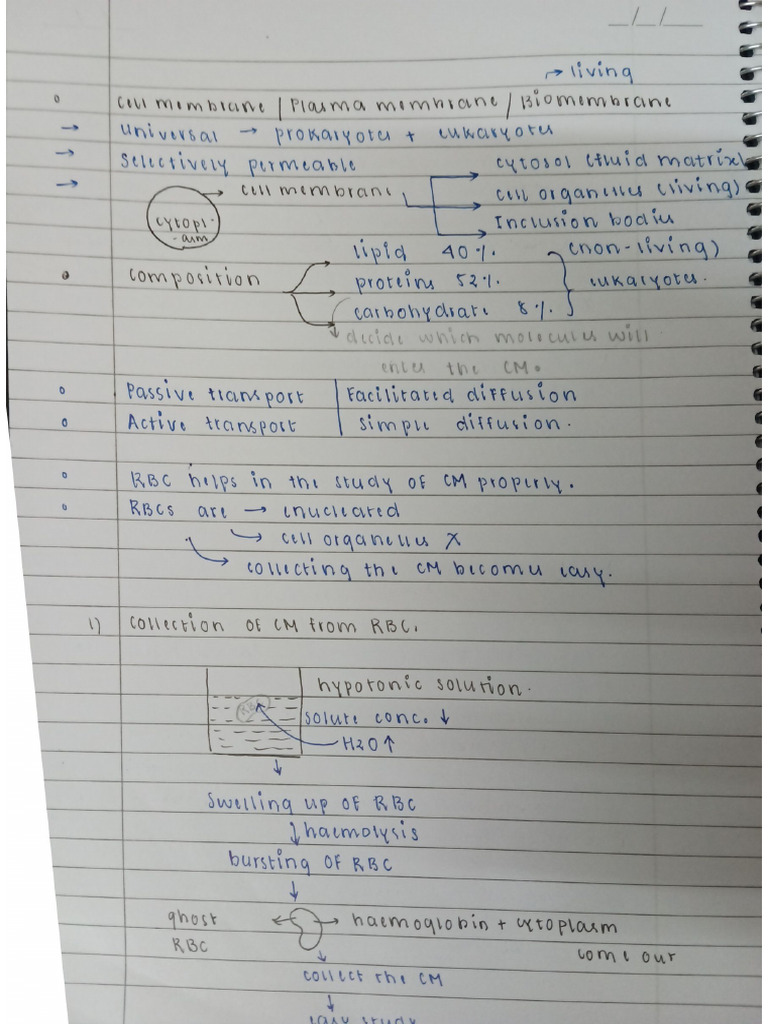 __/__/____
→ living
Cell membrane / Plasma membrane / Biomembrane
→ Universal → prokaryotes + eukaryotes
→ Selectively permeable
cytosol (fluid matrix)
→ cell membrane
cell organelles (living)
cytopl-
-asm
Inclusion bodies
(non-living)
lipid 40%.
Composition
proteins 52%.
eukaryotes.
carbohydrate 8%.
decide which molecules will
enter the CM.
Passive transport | Facilitated diffusion
Active transport | Simple diffusion.
RBC helps in the study of CM properly.
RBCs are → enucleated
→ cell organelles X
→ collecting the CM becomes easy.
1) Collection of CM from RBC.
hypotonic solution.
RBC
solute conc. ↓
H2O ↑
↓
Swelling up of RBC
↓ haemolysis
bursting of RBC
↓
ghost ← → haemoglobin + cytoplasm
RBC come out
↓
collect the CM
↓
easy study